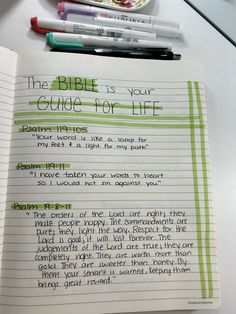 The BIBLE is your
GUIDE FOR LIFE
Psalm 119:105
"Your word is like a lamp for
my feet & a light for my path"
Psalm 119:11
"I have taken your words to heart
so I would not sin against you"
Psalm 19:8-11
"The orders of the Lord are right; they
make people happy. The commandments are
pure; they light the way. Respect for the
Lord is good; it will last forever. The
judgements of the Lord are true; they are
completely right. They are worth more than
gold. They are sweeter than honey. By
them your servant is warned. Keeping them
brings great reward."